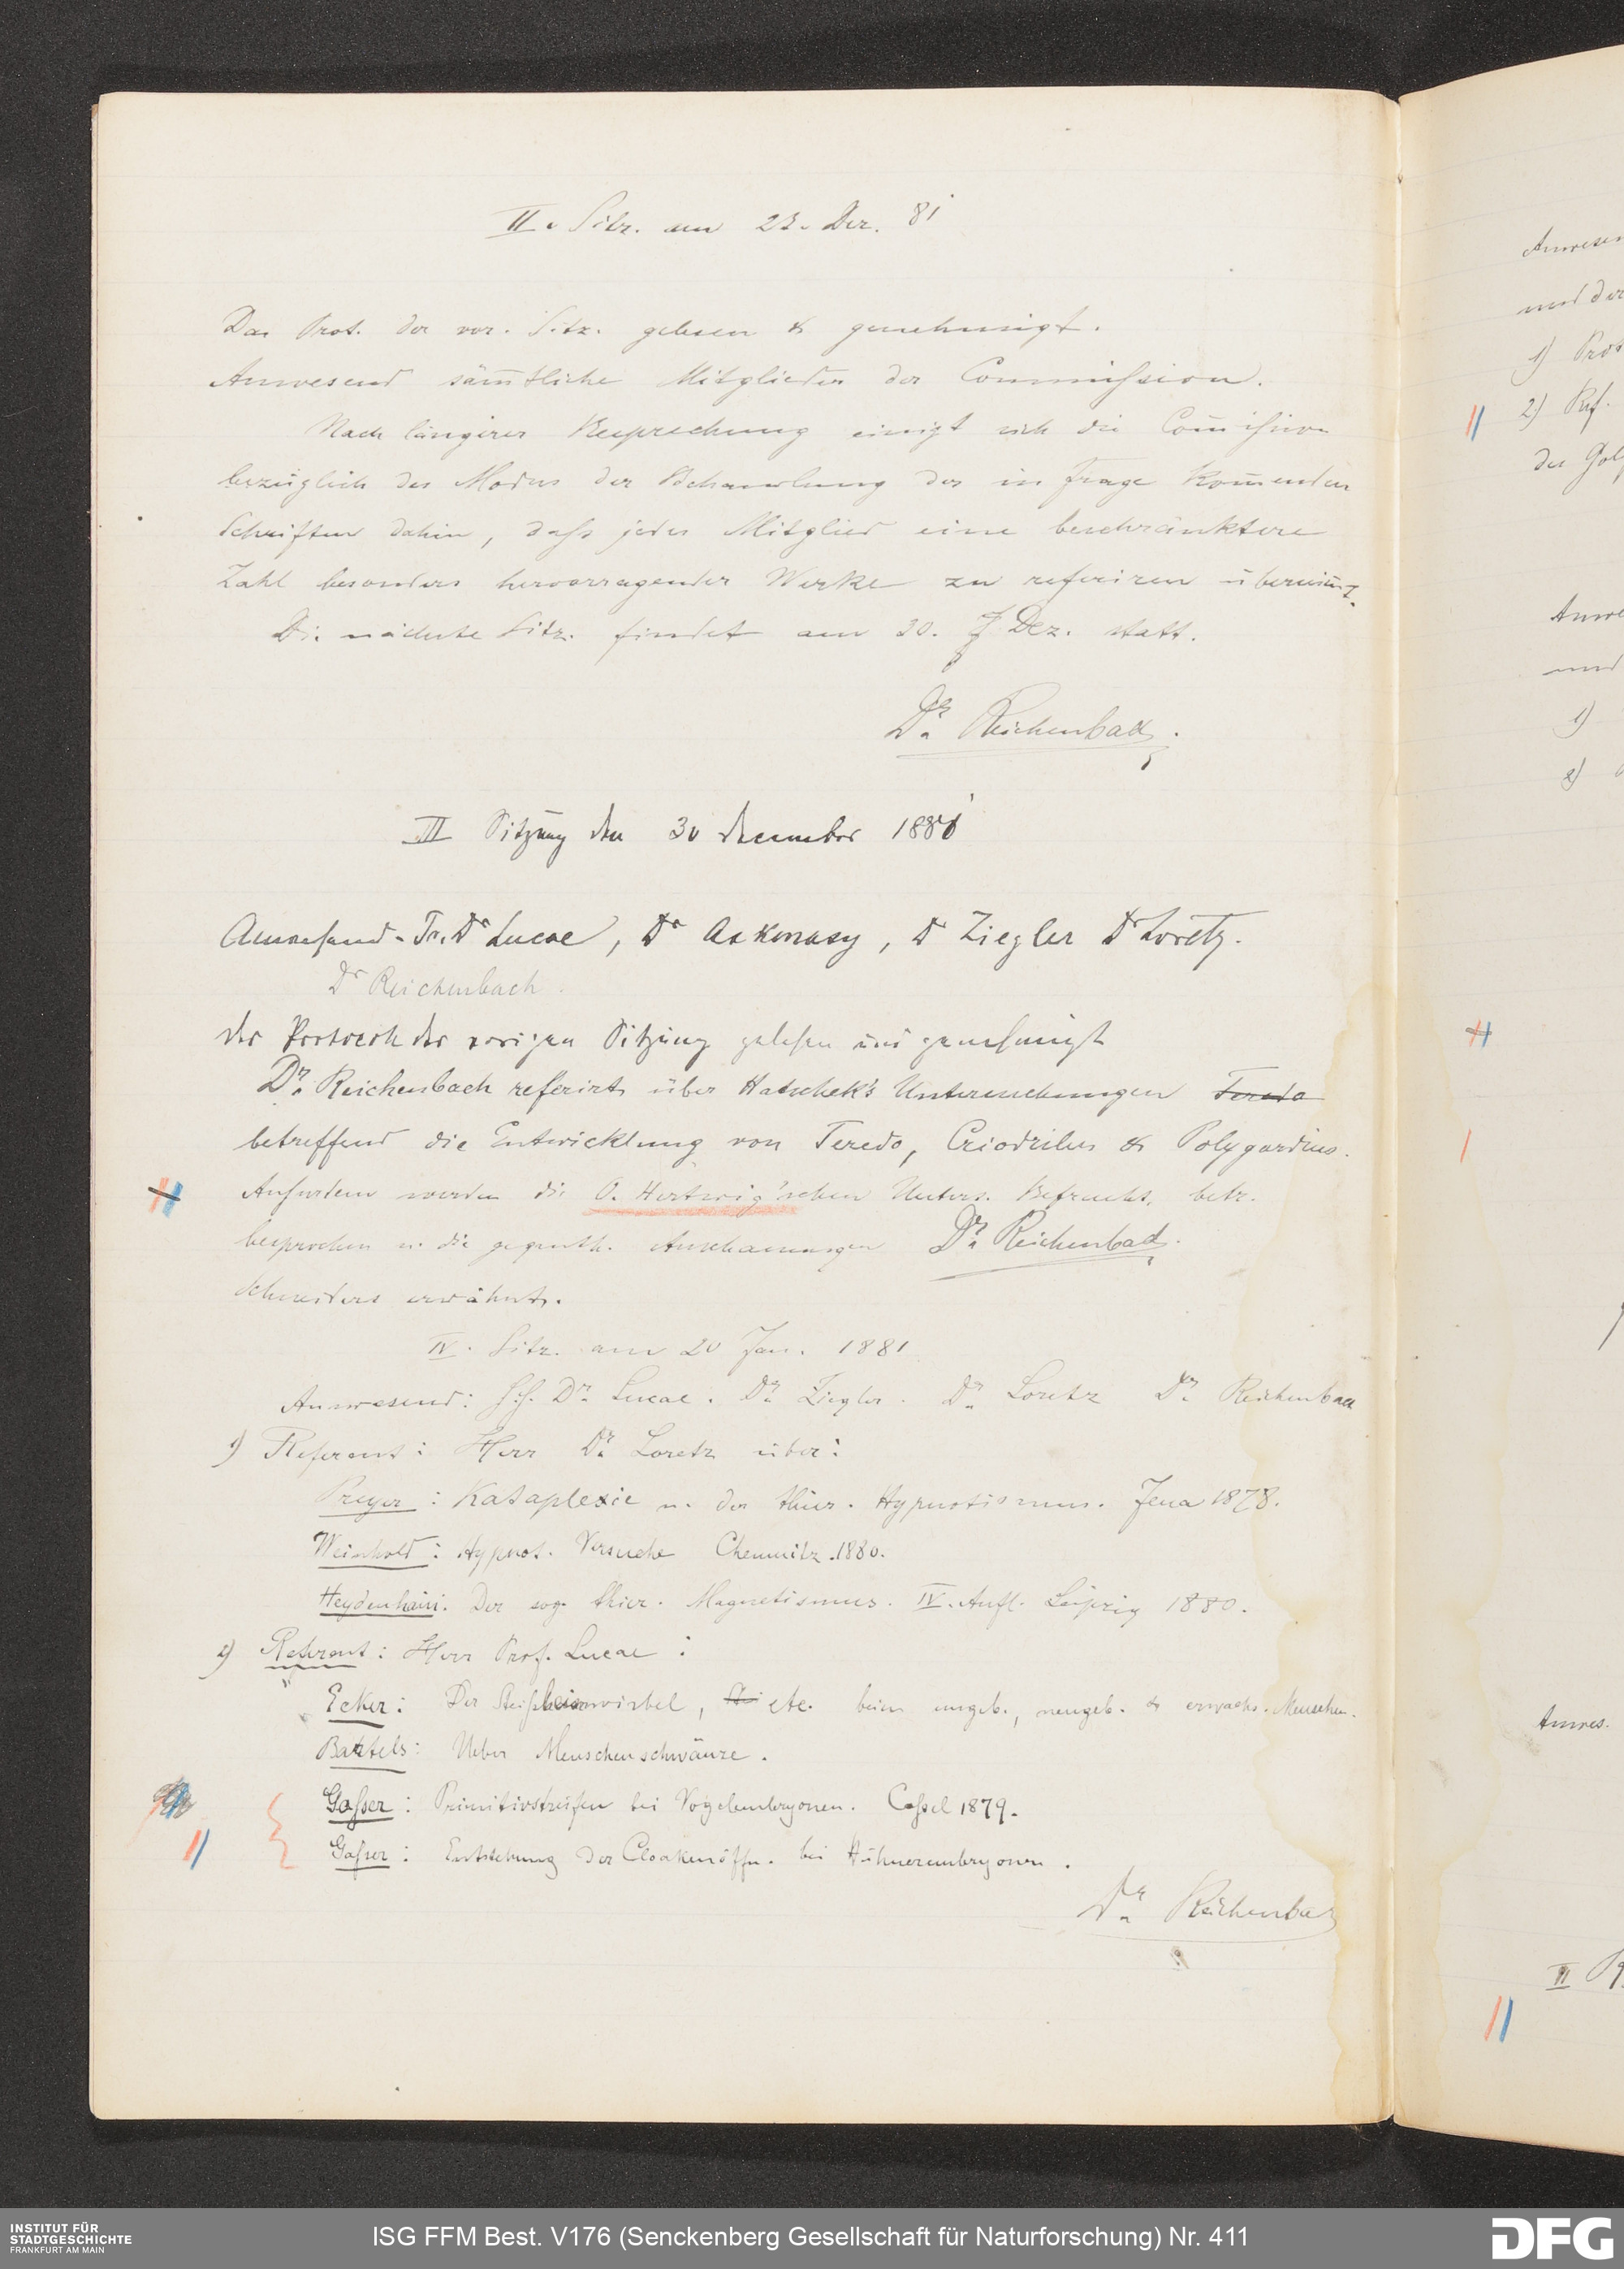 II. Sitz. am 23. Dez. 81
Das Prot. der vor. Sitz. gelesen & genehmigt.
Anwesend säm̄tliche Mitglieder der Commiſsion.
Nach längerer Besprechung einigt sich die Com̄iſsion
bezüglich des Modus der Behandlung der in Frage kom̄enden
Schriften dahin, daſs jedes Mitglied eine beschränktere
Zahl besonders hervorragender Werke zu referiren übernim̄t.
Die nächste Sitz. findet am 30. Dez. statt.
Dr. Reichenbach.
III Sitzung den 30 December 1881
Anwesend Dr Lucae, Dr Askenasy, Dr Ziegler Dr Loretz.
Dr Reichenbach.
Der Protocoll der vorigen Sitzung gelesen und genehmigt
Dr. Reichenbach referirt über Hatschek's Untersuchungen Teredo
betreffend die Entwicklung von Teredo, Criodrilus & Polygordius.
Auſserdem werden die O. Hertwig'schen Unters. Befrucht. betr.
besprochen u. die gegenth. Anschauungen
Dr. Reichenbach.
Schneiders erwähnt.
IV. Sitz. am 20 Jan. 1881
Anwesend: H.H. Dr. Lucae. Dr. Ziegler. Dr. Loretz Dr. Reichenbach
1) Referent: Herr Dr. Loretz über:
Preyer: Kataplexie u. der thier. Hypnotismus. Jena 1878.
Weinhold: Hypnot. Versuche Chemnitz. 1880.
Heydenhain: Der sog. thier. Magnetismus. IV. Aufl. Leipzig 1880.
2) Referent: Herr Prof. Lucae:
Ecker: Der Steiſsbeinwirbel, etc. beim ungeb., neugeb. & erwachs. Menschen.
Bartels: Ueber Menschenschwänze.
Gaſser: Primitivstreifen bei Vogelembryonen. Caſsel 1879.
Gaſser: Entstehung der Cloakenöffn. bei Hühnerembryonen.
Dr. Reichenbach
Anwesen
und der
1) Prot
2) Ref.
der
Anwe
und
1)
2)
Anwes.
II
INSTITUT FÜR
STADTGESCHICHTE
FRANKFURT AM MAIN
ISG FFM Best. V176 (Senckenberg Gesellschaft für Naturforschung) Nr. 411
DFG